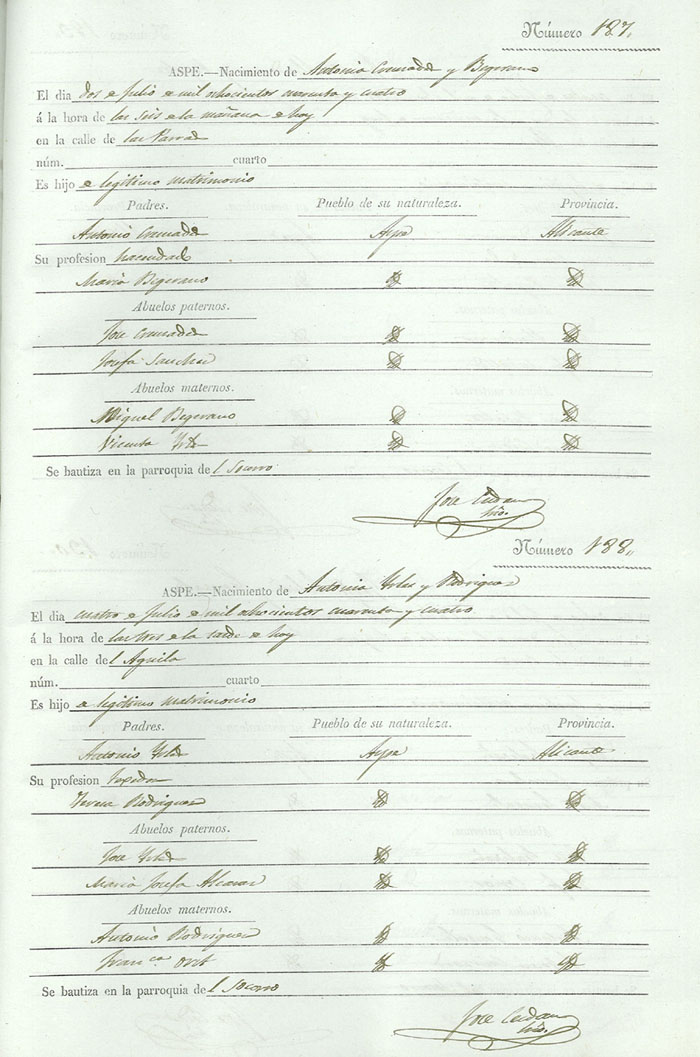 Número 187.
ASPE.—Nacimiento de Antonia Cremades y Begerano
El dia dos de Julio de mil ochocientos cuarenta y cuatro
á la hora de las seis de la mañana de hoy
en la calle de las Parras
núm. cuarto
Es hijo de legitimo matrimonio
Padres. Pueblo de su naturaleza. Provincia.
Antonio Cremades Aspe Alicante
Su profesion hacendado
Maria Begerano id id
Abuelos paternos.
Jose Cremades id id
Josefa Sanchez id id
Abuelos maternos.
Miguel Begerano id id
Vicenta id id
Se bautiza en la parroquia de l Socorro
Jose
Número 188.
ASPE.—Nacimiento de Antonia y Rodriguez
El dia cuatro de Julio de mil ochocientos cuarenta y cuatro
á la hora de las tres de la tarde de hoy
en la calle de l Aguila
núm. cuarto
Es hijo de legitimo matrimonio
Padres. Pueblo de su naturaleza. Provincia.
Antonio Aspe Alicante
Su profesion texedor
Teresa Rodriguez id id
Abuelos paternos.
Jose id id
Maria Josefa Alcaraz id id
Abuelos maternos.
Antonio Rodriguez id id
Franca id id
Se bautiza en la parroquia de l Socorro
Jose